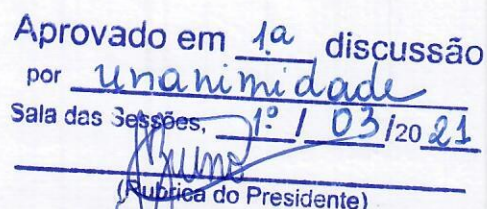 Aprovado em 1ª discussão
por unanimidade
Sala das Sessões, 1º / 03/20 21
Bruno
(Rubrica do Presidente)